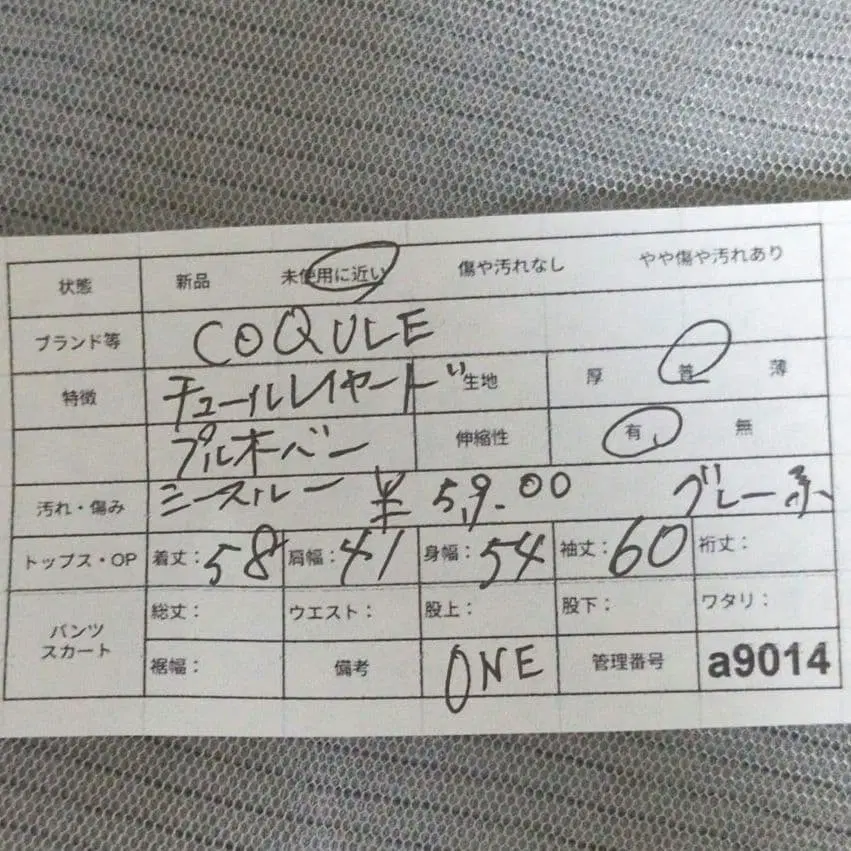 状態 新品 未使用に近い 傷や汚れなし やや傷や汚れあり
ブランド等 COQULE
特徴 チュールレイヤード 生地 厚 普 薄
プルオーバー 伸縮性 有 無
汚れ・傷み シースルー ¥5,9.00 グレー系
トップス・OP 着丈:58 肩幅:41 身幅:54 袖丈:60 裄丈:
パンツ スカート 総丈: ウエスト: 股上: 股下: ワタリ:
裾幅: 備考 ONE 管理番号 a9014